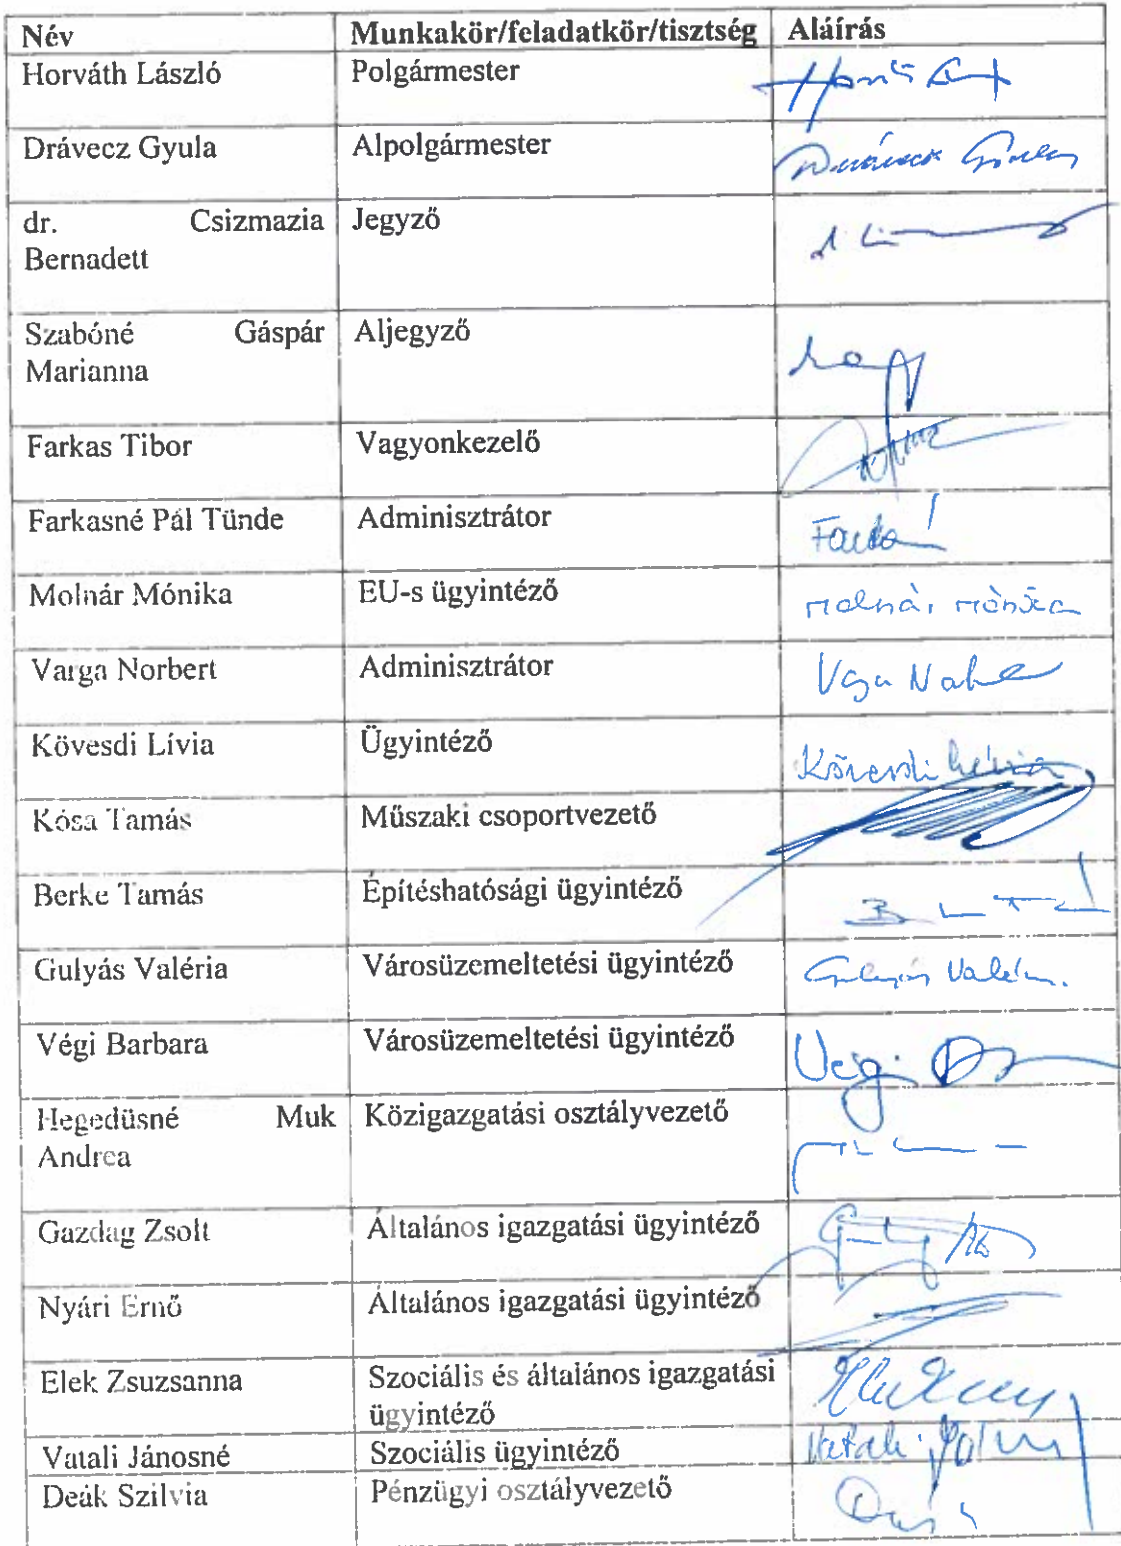 Név Munkakör/feladatkör/tisztség Aláírás
Horváth László Polgármester
Drávecz Gyula Alpolgármester
dr. Csizmazia Jegyző
Bernadett
Szabóné Gáspár Aljegyző
Marianna
Farkas Tibor Vagyonkezelő
Farkasné Pál Tünde Adminisztrátor
Molnár Mónika EU-s ügyintéző Molnár Mónika
Varga Norbert Adminisztrátor
Kövesdi Lívia Ügyintéző Kövesdi Lívia
Kósa Tamás Műszaki csoportvezető
Berke Tamás Építéshatósági ügyintéző
Gulyás Valéria Városüzemeltetési ügyintéző Gulyás Valéria
Végi Barbara Városüzemeltetési ügyintéző Végi
Hegedüsné Muk Közigazgatási osztályvezető
Andrea
Gazdag Zsolt Általános igazgatási ügyintéző
Nyári Ernő Általános igazgatási ügyintéző
Elek Zsuzsanna Szociális és általános igazgatási
ügyintéző
Vatali Jánosné Szociális ügyintéző Vatali
Deák Szilvia Pénzügyi osztályvezető